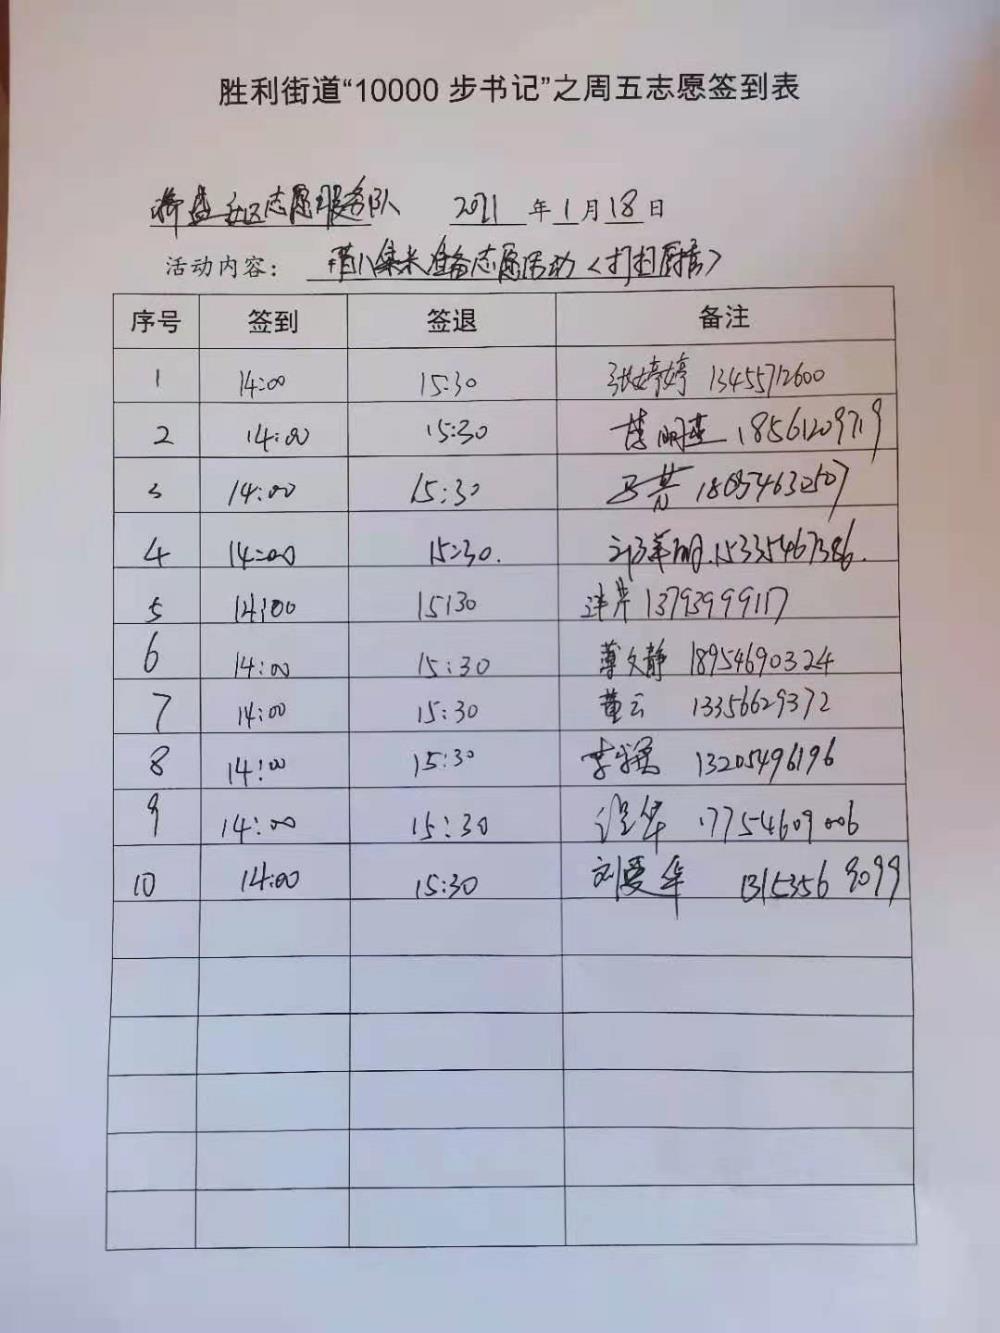 胜利街道“10000 步书记”之周五志愿签到表
社区志愿服务队 2021 年 1 月 18 日
活动内容： 腊八集米准备志愿活动（打扫厨房）
序号 签到 签退 备注
1 14:00 15:30 张婷婷 13455712600
2 14:00 15:30 18561209719
3 14:00 15:30 18654632507
4 14:00 15:30. 15335467386.
5 14:00 15:30 13793999117
6 14:00 15:30 薄文静 18954690324
7 14:00 15:30 董云 13356629372
8 14:00 15:30 13205496196
9 14:00 15:30 17754609006
10 14:00 15:30 刘爱华 13153569099